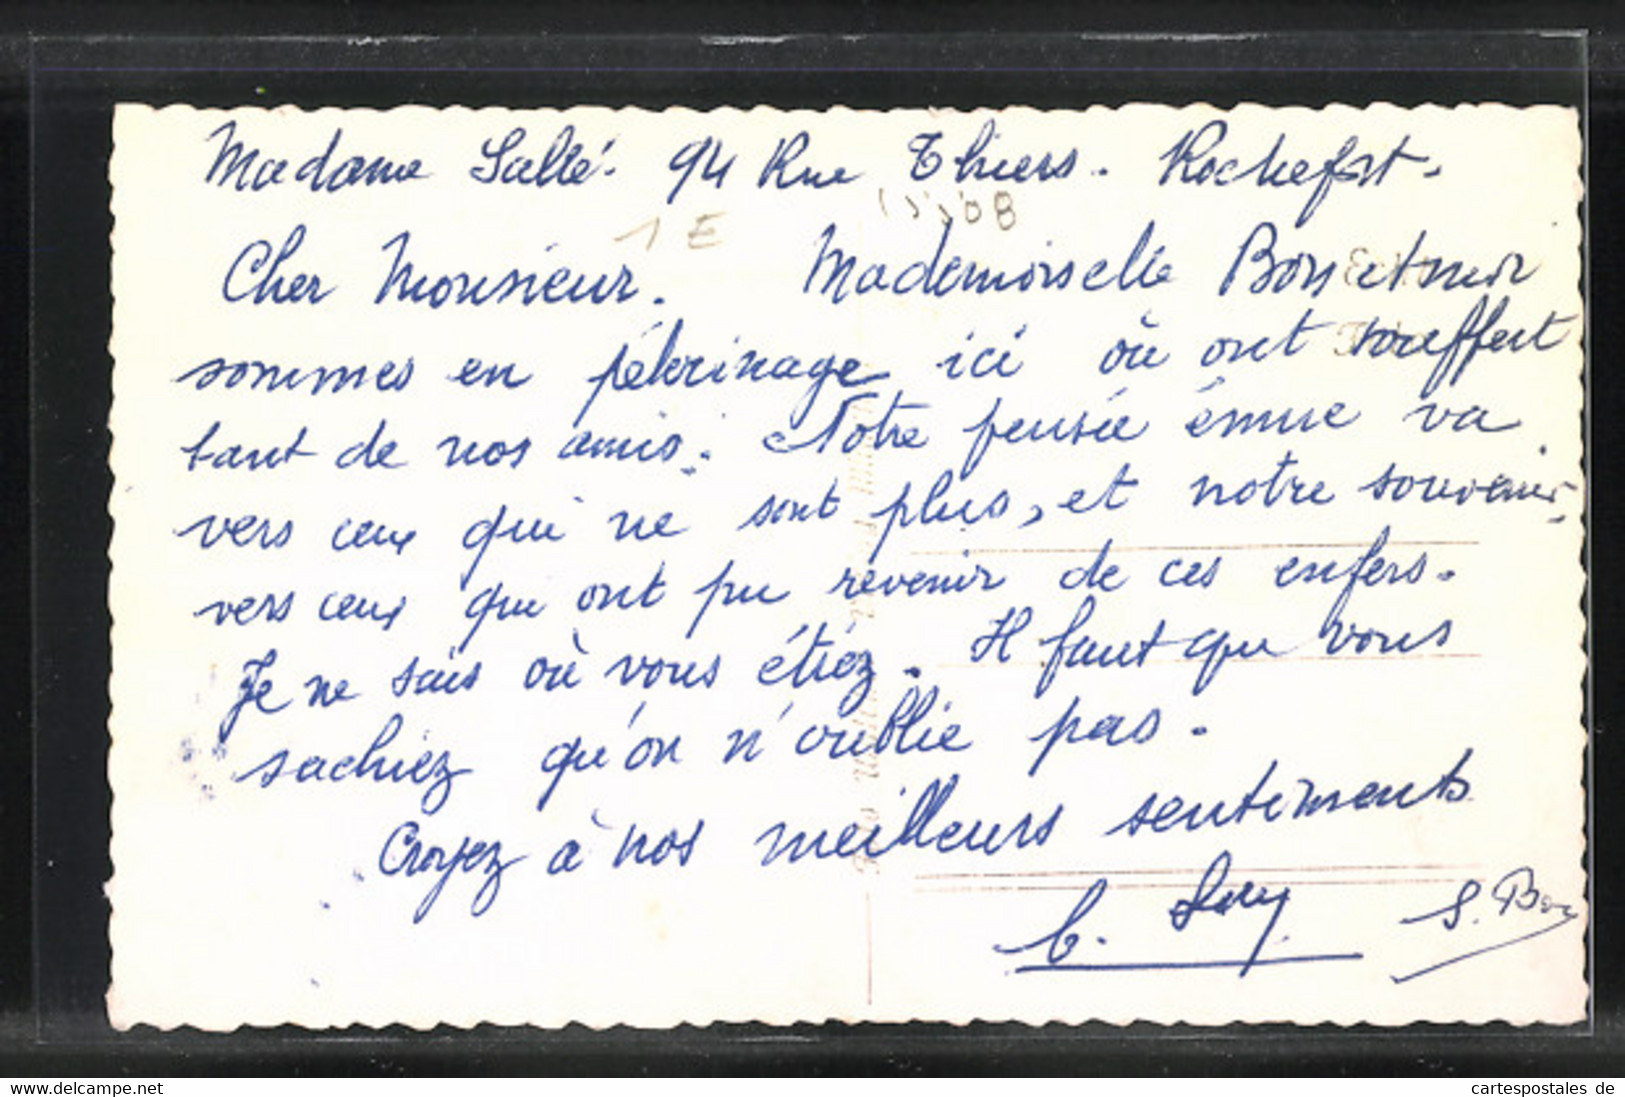 Madame Sallé. 94 Rue Thiers. Rochefort.
1 E
Cher Monsieur. Mademoiselle Bon et moi
sommes en pélerinage ici où ont souffert
tant de nos amis. Notre pensée émue va
vers ceux qui ne sont plus, et notre souvenir
vers ceux qui ont pu revenir de ces enfers.
Je ne sais où vous étiez. Il faut que vous
sachiez qu'on n'oublie pas.
Croyez à nos meilleurs sentiments
S.
www.delcampe.net
cartespostales de